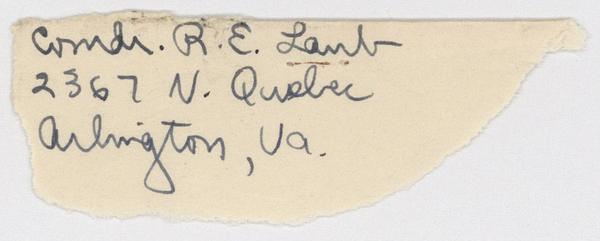 Comdr. R. E. Lamb
2367 N. Quebec
Arlington, Va.